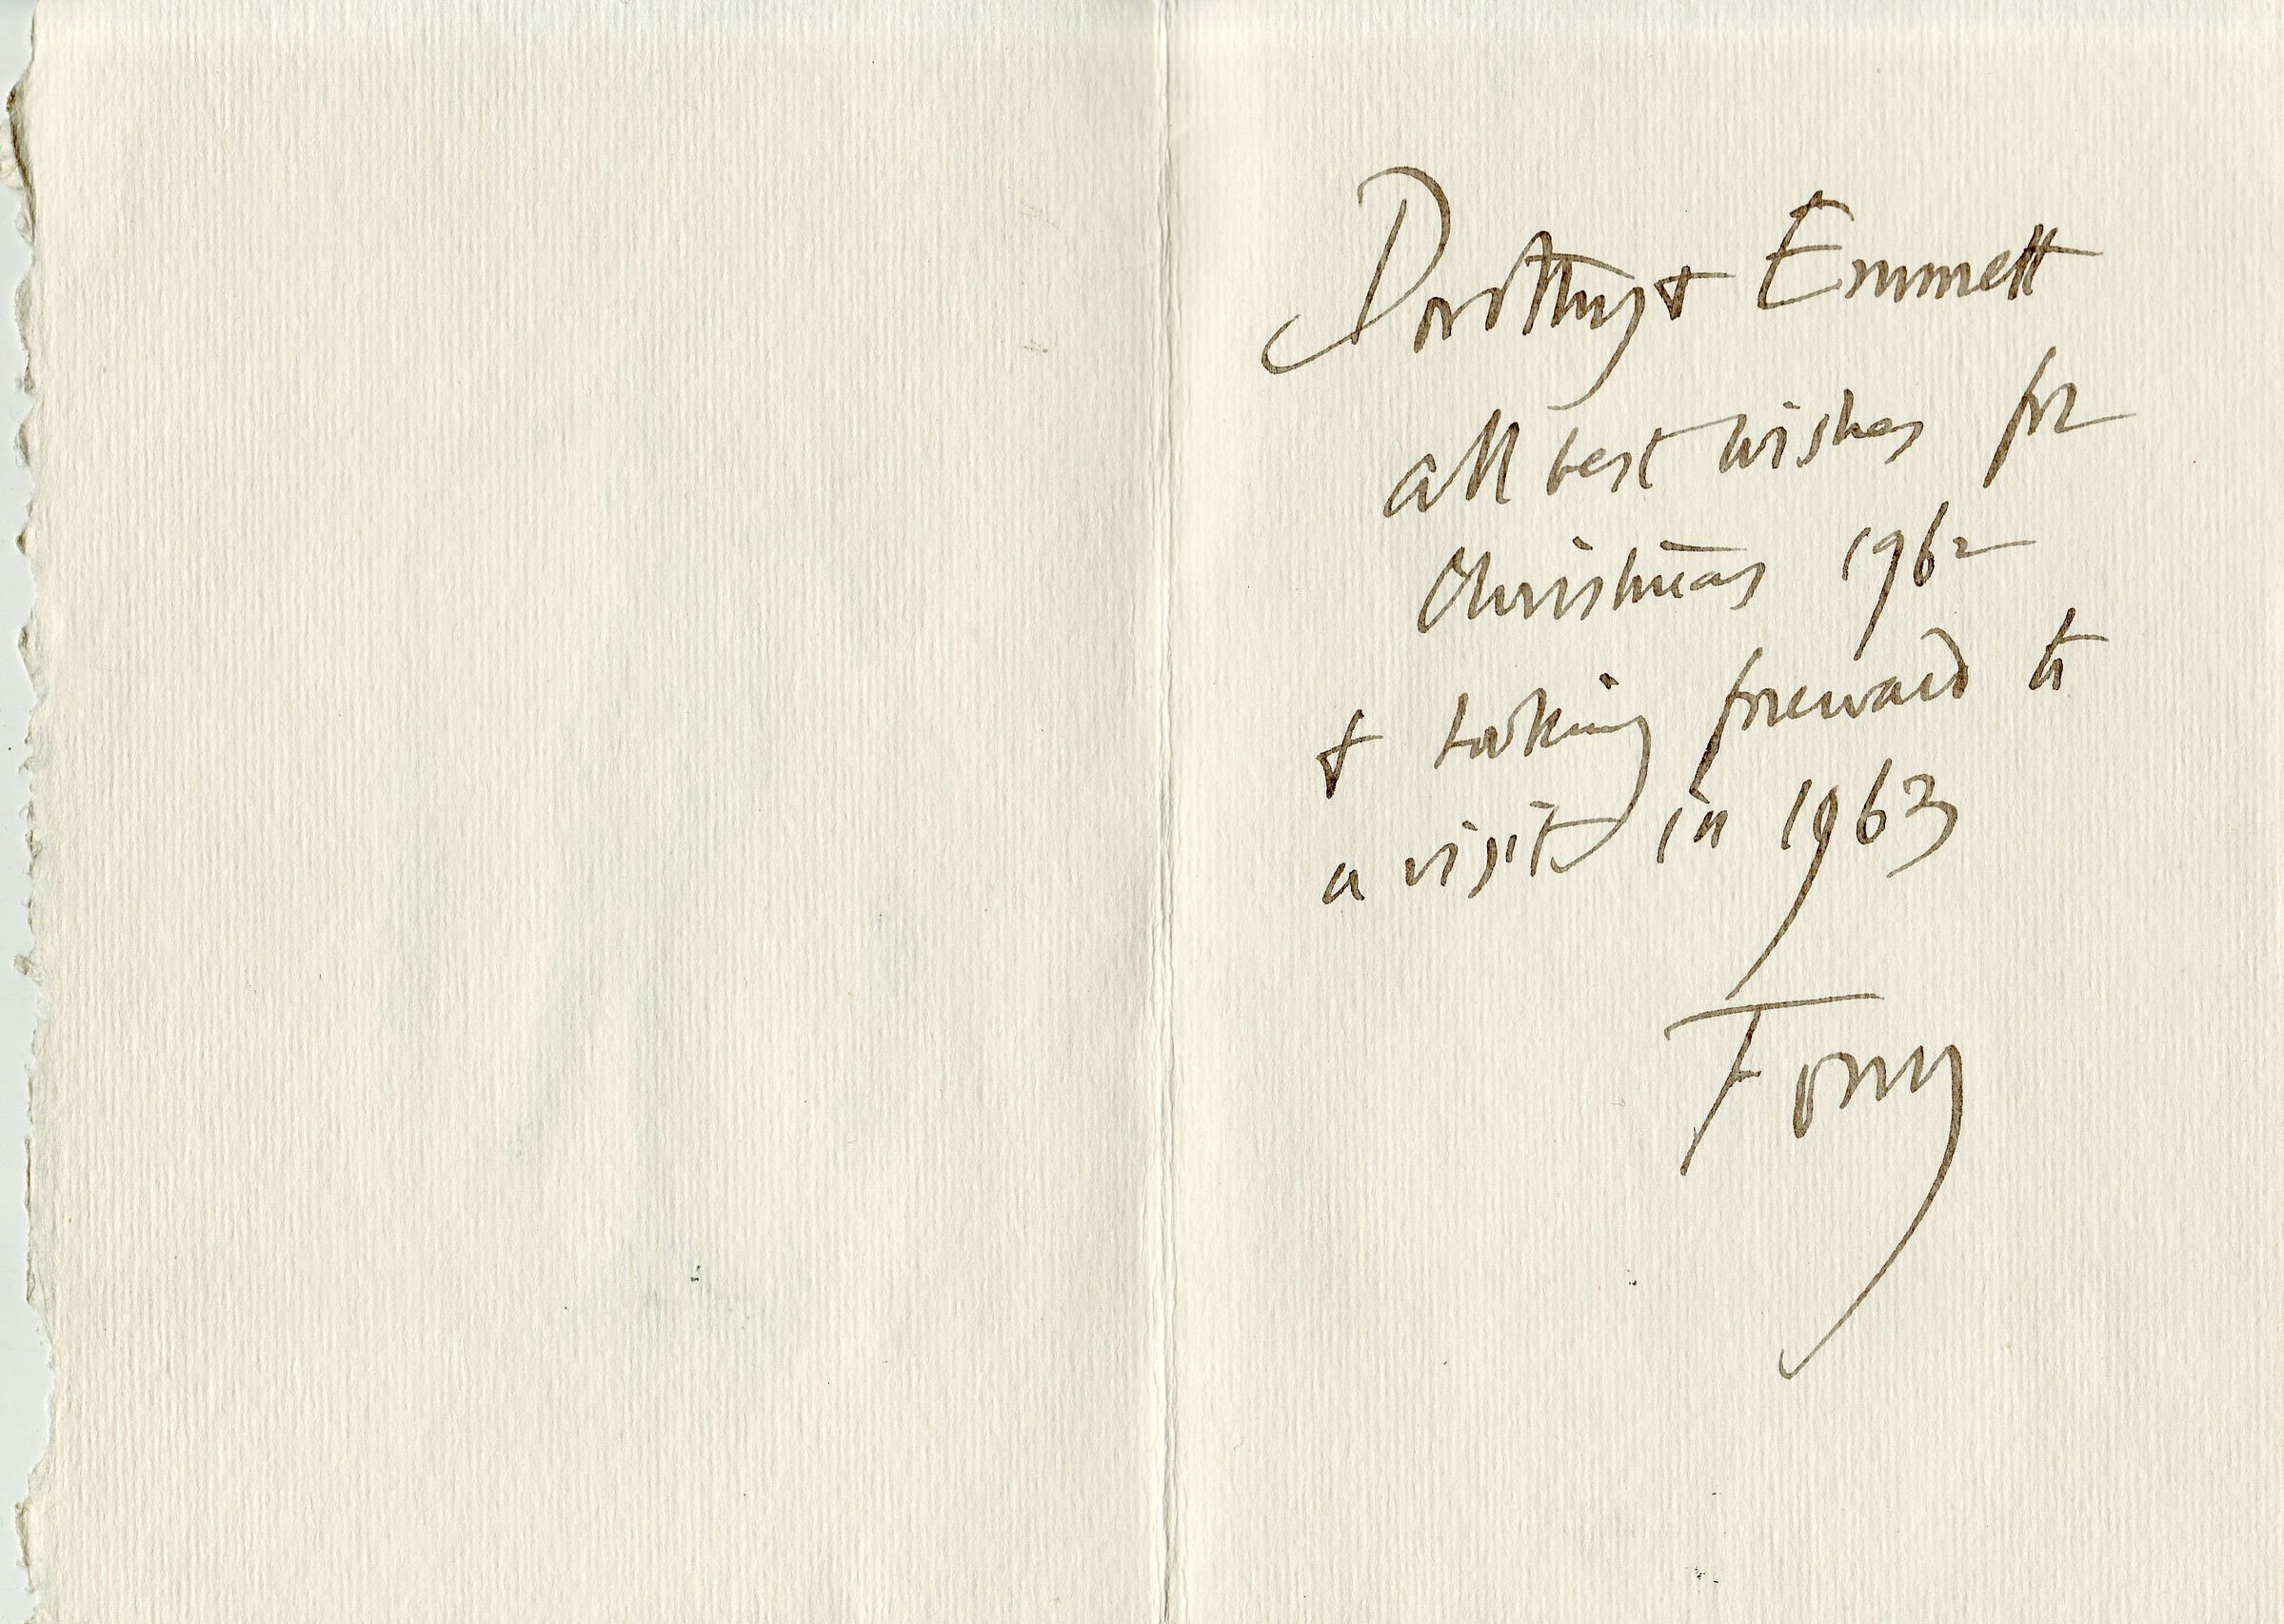 Dorothy & Emmett
all best wishes for
Christmas 1962
& looking foreward to
a visit in 1963
Tony